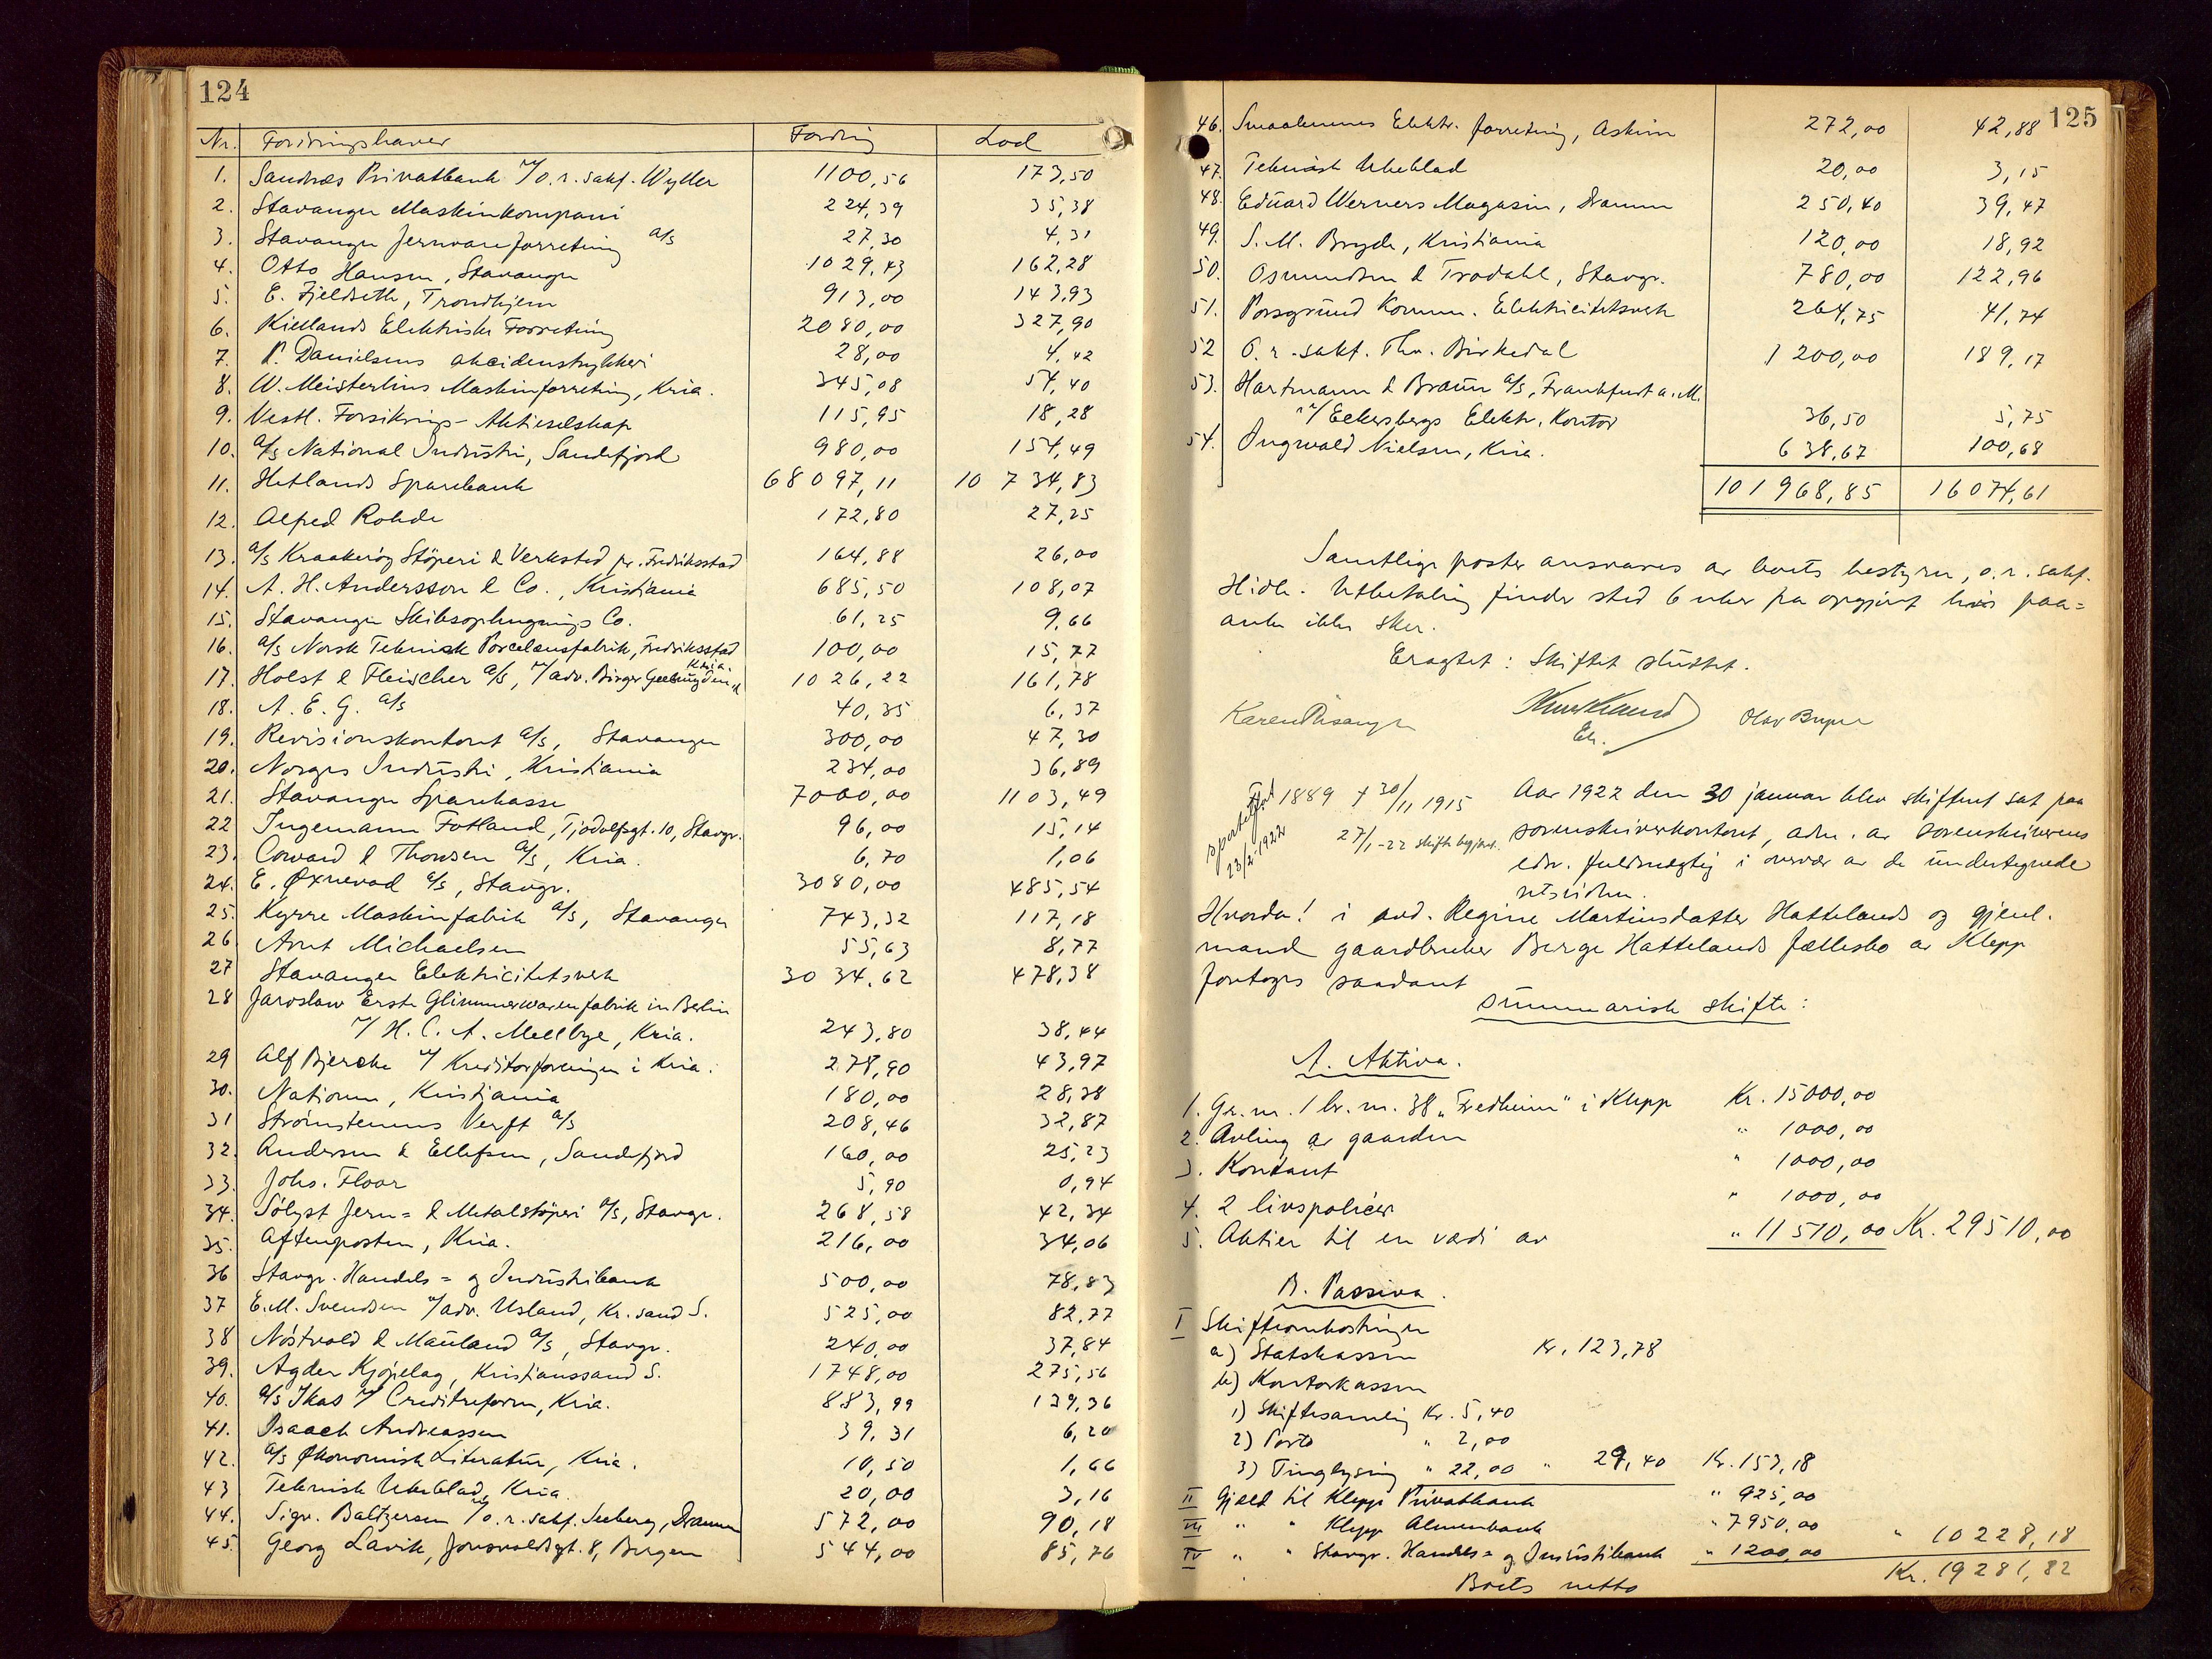 124
Nr. Fordringshaver Fordring Lod
1. Sandnæs Privatbank v/o.r.sakf. Wyller 1100,56 173,50
2. Stavanger Maskinkompani 224,39 35,38
3. Stavanger Jernvareforretning a/s 27,30 4,31
4. Otto Hansen, Stavanger 1029,43 162,28
5. E. Fjeldseth, Trondhjem 913,00 143,93
6. Kiellands Elektriske Forretning 2080,00 327,90
7. P. Danielsens akcidenstrykkeri 28,00 4,42
8. W. Meisterlins Maskinforretning, Kria. 345,08 54,40
9. Vestl. Forsikrings-Aktieselskap 115,95 18,28
10. a/s National Industri, Sandefjord 980,00 154,49
11. Hetlands Sparebank 68097,11 10734,83
12. Alfred Rohde 172,80 27,25
13. a/s Kraakerøy Støperi & Verksted pr. Fredriksstad 164,88 26,00
14. A. H. Andersson & Co., Kristiania 685,50 108,07
15. Stavanger Skibsophugnings Co. 61,25 9,66
16. a/s Norsk Teknisk Porcelænsfabrik, Fredriksstad 100,00 15,77
17. Holst & Fleischer a/s, v/adv. Birger Kria. 1026,22 161,78
18. A. E. G. a/s 40,35 6,37
19. Revisionskontoret a/s, Stavanger 300,00 47,30
20. Norges Industri, Kristiania 234,00 36,89
21. Stavanger Sparekasse 7000,00 1103,49
22 Ingemann Fotland, Tjodolfsgt. 10, Stavgr. 96,00 15,14
23. Coward & Thowsen a/s, Kria. 6,70 1,06
24. E. Øxnevad a/s, Stavgr. 3080,00 485,54
25. Kyrre Maskinfabrik a/s, Stavanger 743,32 117,18
26. Arnt Michaelsen 55,63 8,77
27 Stavanger Elektricitetsverk 3034,62 478,38
28 Jaroslaw Erste Glimmerwarenfabrik in Berlin
v/ H. C. A. Mellbye, Kria. 243,80 38,44
29 Alf Bjercke v/ Kreditorforeningen i Kria. 278,90 43,97
30. Nationen, Kristiania 180,00 28,38
31 Strømstemens Verft a/s 208,46 32,87
32. Andersen & Ellefsen, Sandefjord 160,00 25,23
33. Johs. Floor 5,90 0,94
34. Sølyst Jern= & Metalstøperi a/s, Stavgr. 268,58 42,34
35. Aftenposten, Kria. 216,00 34,06
36 Stavgr. Handels= og Industribank 500,00 78,83
37 E. M. Svendsen v/adv. Usland, Kr.sand S. 525,00 82,77
38 Nöstvold & Mauland a/s, Stavgr. 240,00 37,84
39. Agder Kjøpelag, Kristianssand S. 1748,00 275,56
40. a/s Ikas v/ Creditreform, Kria. 883,99 139,36
41. Isaach Andreassen 39,31 6,20
42. a/s Økonomisk Literatur, Kria. 10,50 1,66
43 Teknisk Ukeblad, Kria. 20,00 3,16
44. Sigv. Baltzersen v/o.r.sakf. Seeberg, Drammen 572,00 90,18
45. Georg Lavik, Jonsvoldsgt. 8, Bergen 544,00 85,76
125
46. Smaalenenes Elektr. forretning, Askim 272,00 42,88
47. Teknisk Ukeblad 20,00 3,15
48. Eduard Werners Magasin, Dramm 250,40 39,47
49. S. M. Bryde, Kristiania 120,00 18,92
50. Osmundsen & Trodahl, Stavgr. 780,00 122,96
51. Porsgrund Komm. Elektricitetsverk 264,75 41,74
52 O.r.sakf. Thv. Birkedal 1200,00 189,17
53. Hartmann & Braun a/s, Frankfurt a. M.
v/ Eckersbergs Elektr. Kontor 36,50 5,75
54. Ingwald Nielsen, Kria. 638,67 100,68
101968,85 16074,61
Samtlige poster ansvares av boets bestyrer, o.r.sakf.
Hidle. Utbetaling finder sted 6 uker fra opgjøret hvis paa=
anke ikke sker.
Eragtet: Skiftet sluttet.
Karen Olav
Et.
Født 1889 † 30/11 1915 Aar 1922 den 30 januar blev skifteret sat paa
sportelført 23/2 1922 27/1-22 skifte begjært. sorenskriverkontoret, adm. av sorenskriverens
edsv. fuldmægtig i overvær av de undertegnede
retsvidner.
Hvorda! i avd. Regine Martinsdatter Hattelands og gjenl.
mand gaardbruker Berge Hattelands fællesbo av Klepp
foretoges saadant
summarisk skifte:
A. Aktiva.
1. Gr. nr. 1 br. nr. 38 „Fredheim" i Klepp Kr. 15000,00
2. Avling av gaarden " 1000,00
3. Kontant " 1000,00
4. 2 livspolicer " 1000,00
5. Aktier til en værdi av " 11510,00 Kr. 29510,00
B. Passiva.
I Skifteomkostninger
a) Statskassen Kr. 123,78
b) Kontorkassen
1) Skiftesamling Kr. 5,40
2) Porto " 2,00
3) Tinglysning " 22,00 " 29,40 Kr. 153,18
II Gjæld til Klepp Privatbank " 925,00
III " " Klepp Almenbank " 7950,00
IV " " Stavgr. Handels= og Industribank " 1200,00 " 10228,18
Boets netto Kr. 19281,82